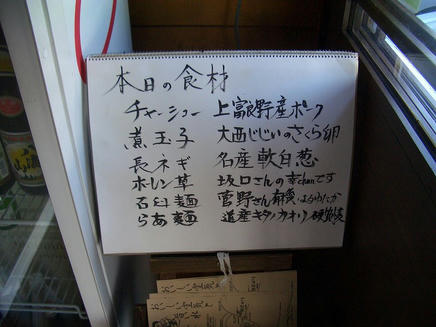 本日の食材
チャーシュー 上富良野産ポーク
煮玉子 大西じじいのさくら卵
長ネギ 名産軟白葱
ホーレン草 坂口さんの幸chanです
石臼麺 菅野さん有機はるゆたか
らぁ麺 道産キタノカオリ